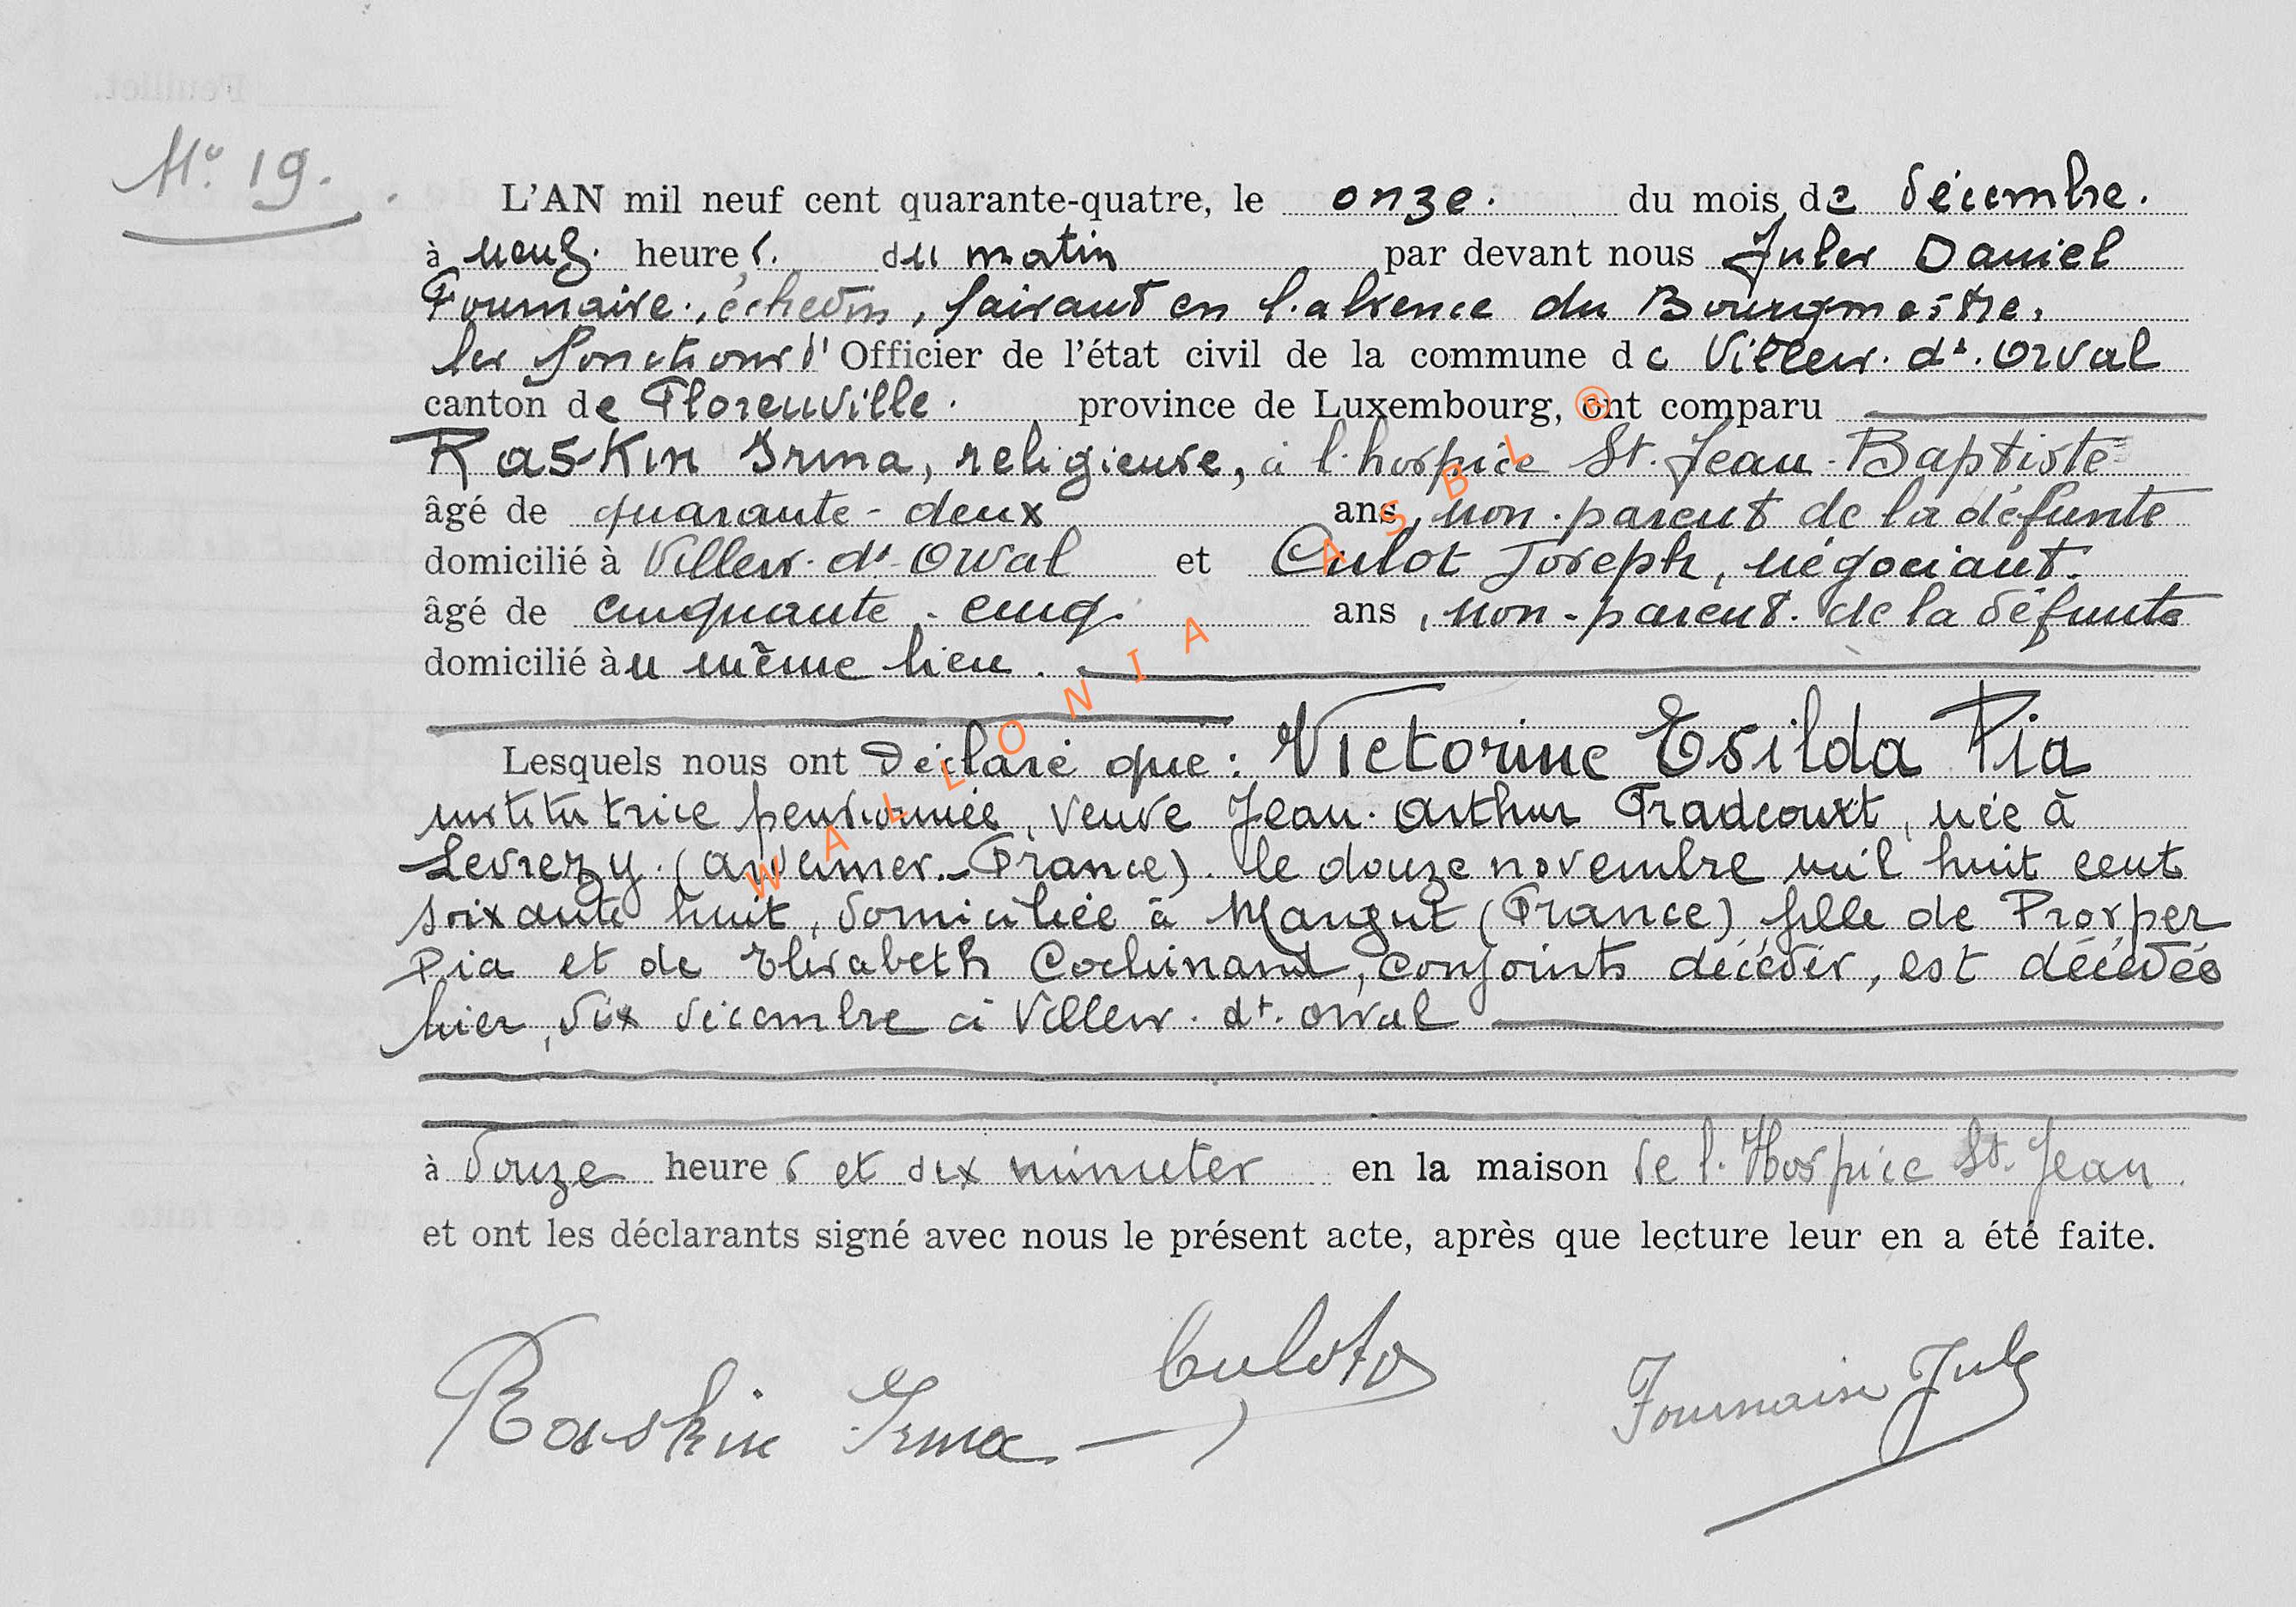 N° 19.
L'AN mil neuf cent quarante-quatre, le onze. du mois de décembre.
à neuf. heures. du matin par devant nous Jules Daniel
Fournaise, échevin, faisant en l'absence du Bourgmestre,
les fonctions d'Officier de l'état civil de la commune de Villers-dt-Orval
canton de Florenville. province de Luxembourg, ont comparu
Raskin Irma, religieuse, à l'hospice St. Jean-Baptiste
âgé de quarante-deux ans, non-parent de la défunte
domicilié à Villers-dt-Orval et Culot Joseph, négociant.
âgé de cinquante-cinq. ans, non-parent. de la défunte
domicilié au même lieu.
Lesquels nous ont déclaré que: Victorine Esilda Pia
institutrice pensionnée, veuve Jean-Arthur Fradcourt, née à
Levrezy. (Ardennes-France). le douze novembre mil huit cent
soixante huit, domiciliée à Margut (France) fille de Prosper
Pia et de Elisabeth Cochinard, conjoints décédés, est décédée
hier, dix décembre à Villers-dt-Orval
à douze heures et dix minutes en la maison de l'Hospice St. Jean
et ont les déclarants signé avec nous le présent acte, après que lecture leur en a été faite.
Raskin Irma Culot Fournaise Jules
WALLONIA ASBL ®